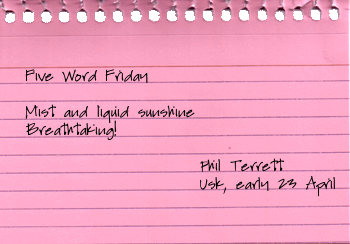 Five Word Friday
Mist and liquid sunshine
Breathtaking!
Phil Terrett
Usk, early 23 April